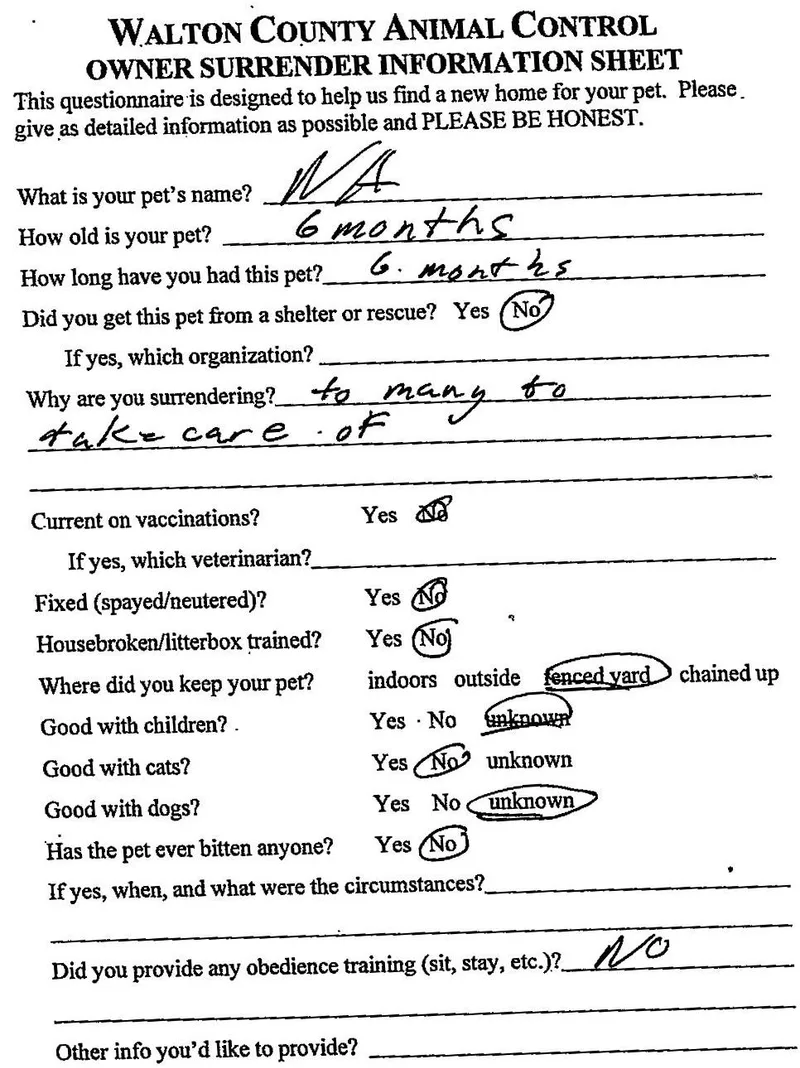 WALTON COUNTY ANIMAL CONTROL
OWNER SURRENDER INFORMATION SHEET
This questionnaire is designed to help us find a new home for your pet. Please
give as detailed information as possible and PLEASE BE HONEST.
What is your pet's name? N/A
How old is your pet? 6 months
How long have you had this pet? 6. months
Did you get this pet from a shelter or rescue? Yes No
If yes, which organization?
Why are you surrendering? to many to
take care of
Current on vaccinations? Yes No
If yes, which veterinarian?
Fixed (spayed/neutered)? Yes No
Housebroken/litterbox trained? Yes No
Where did you keep your pet? indoors outside fenced yard chained up
Good with children? Yes No unknown
Good with cats? Yes No unknown
Good with dogs? Yes No unknown
Has the pet ever bitten anyone? Yes No
If yes, when, and what were the circumstances?
Did you provide any obedience training (sit, stay, etc.)? NO
Other info you'd like to provide?